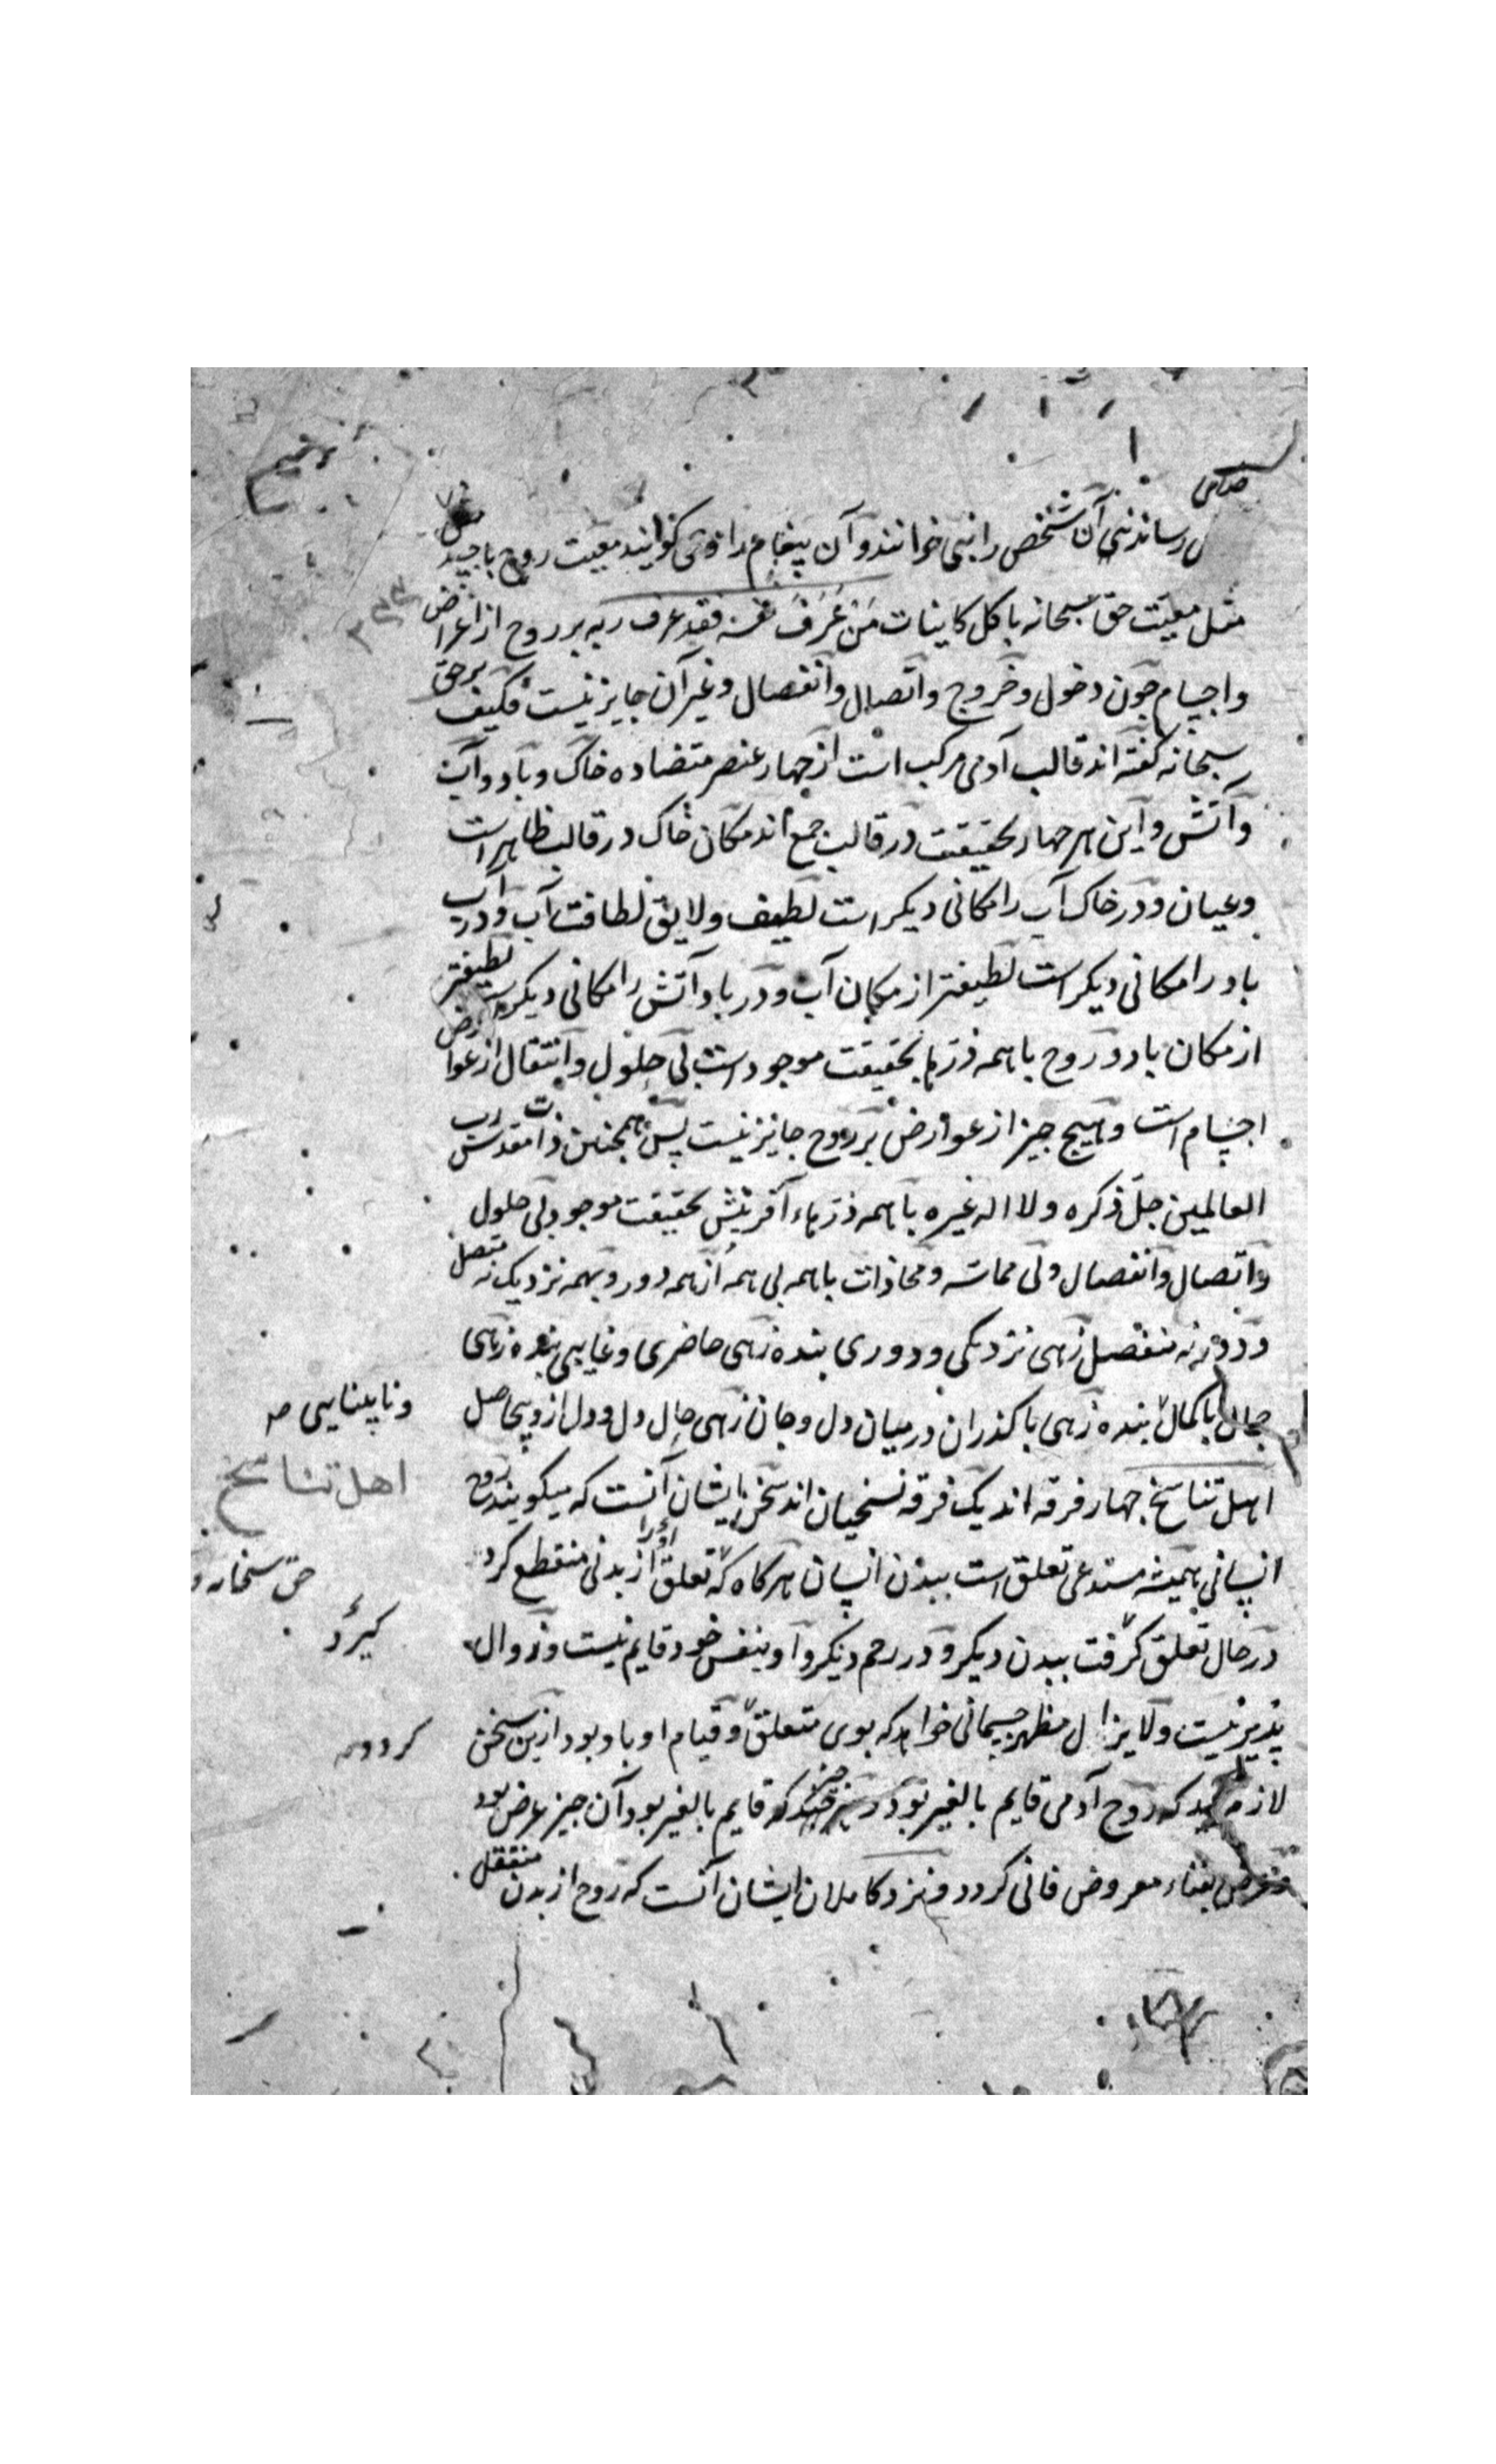 رسانند نبی آن شخص را نبی خوانند و آن پیغام را وحی کوایند معیت روح با جسد
مثل معیّت حق سبحانه با کل کاینات مَن عَرَفَ نفسه فقد عرف ربه بر روح از اعراض
واجسام چون دخول و خروج و اتصال و انفصال و غیر آن جایز نیست فکیف بر حق
سبحانه کفته اند قالب آدمی مرکب است از چهار عنصر متضاده خاک و باد و آب
و آتش و این هر چهار بحقیقت در قالب جمع اند مکان خاک در قالب ظاهر است
و عیان و در خاک آب را مکانی دیکر است لطیف و لایق لطافت آب و در آب
باد را مکانی دیکر است لطیفتر از مکان آب و در باد آتش را مکانی دیکرست لطیفتر
از مکان باد و روح با همه ذرّها بحقیقت موجود است بی حلول و انتقال از عوارض
اجسام است و هیچ چیز از عوارض بر روح جایز نیست پس همچنین ذات مقدس رب
العالمین جلّ ذکره ولا اله غیره با همه ذرّهاء آفرینش بحقیقت موجود بی حلول
و اتصال و انفصال و بی مماسّه و محاذات با همه بی همه از همه دور و بهمه نزدیک نه متصل
و دور نه منفصل زهی نزدیکی و دوری بنده زهی حاضری و غایبی بنده زهی
جمال با کمال بنده زهی با کذران در میان دل و جان زهی حال دل و دل از وی حاصل
و ناپینایی صه
اهل تناسخ
اهل تناسخ چهار فرقه اند یک فرقه نسخیان اند سخن ایشان آنست که میکویند روح
انسانی همیشه مستدعی تعلق است ببدن انسان هر کاه که تعلق او را از بدنی منقطع کرد
حق سبحانه و
در حال تعلق کرفت ببدن دیکر و در رحم دیکر و او بنفس خود قایم نیست و زوال
کیرد
پذیر نیست و لا یزال مظهر جسمانی خواهد که بوی متعلق و قیام او باو بود ازین سخن
کردد صه
لازم آید که روح آدمی قایم بالغیر بود و هر چیز که قایم بالغیر بود آن چیز عرض بود
و عرض بفناء معروض فانی کردد و نزد کاملان ایشان آنست که روح از بدن منتقل